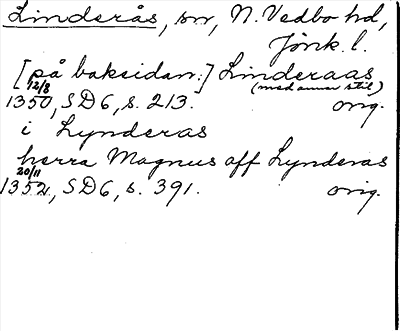 Linderås, sn, N. Vedbo hd,
Jönk. l.
[på baksidan:] Linderaas
(med annan stil)
12/8
1350, SD6, s. 213. orig.
i Lynderas
herra Magnus aff Lynderas
20/11
1352, SD6, s. 391. orig.